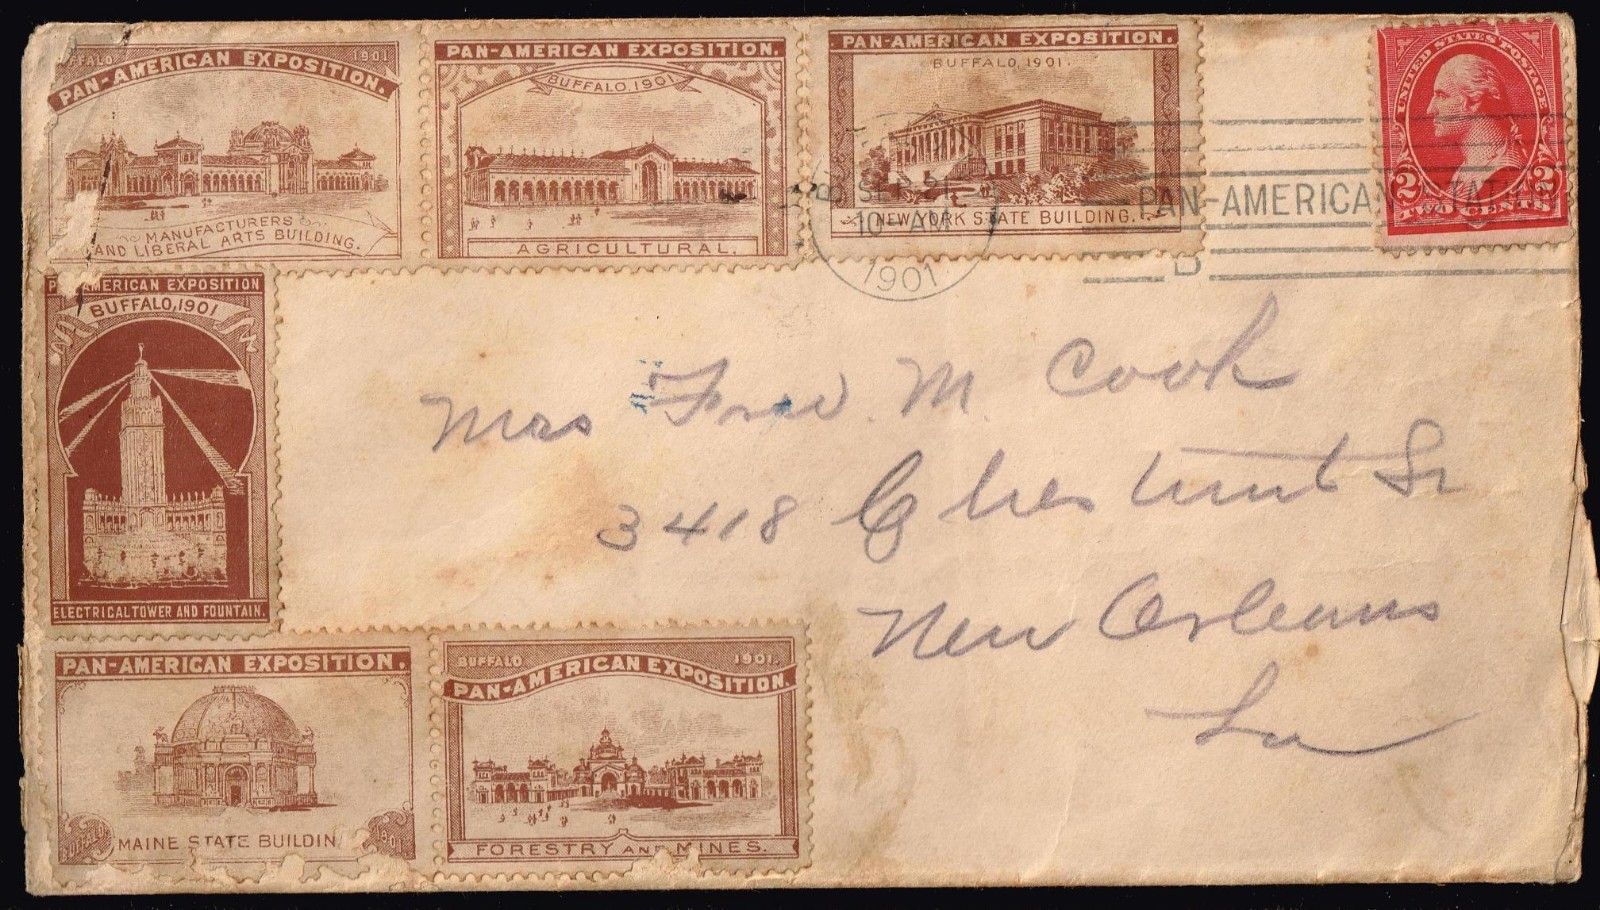 BUFFALO 1901
PAN-AMERICAN EXPOSITION.
MANUFACTURERS
AND LIBERAL ARTS BUILDING.
PAN-AMERICAN EXPOSITION.
BUFFALO, 1901
AGRICULTURAL.
PAN-AMERICAN EXPOSITION.
BUFFALO, 1901.
NEW YORK STATE BUILDING.
UNITED STATES POSTAGE
2 2
TWO CENTS
SEP 21
10-AM
1901
PAN-AMERICAN STATION
AMERICAN EXPOSITION
BUFFALO, 1901
ELECTRICAL TOWER AND FOUNTAIN.
Mrs Fred. M. Cook
3418 Chestnut St
New Orleans
La
PAN-AMERICAN EXPOSITION.
BUFFALO 1901
MAINE STATE BUILDIN
BUFFALO 1901.
PAN-AMERICAN EXPOSITION.
FORESTRY AND MINES.